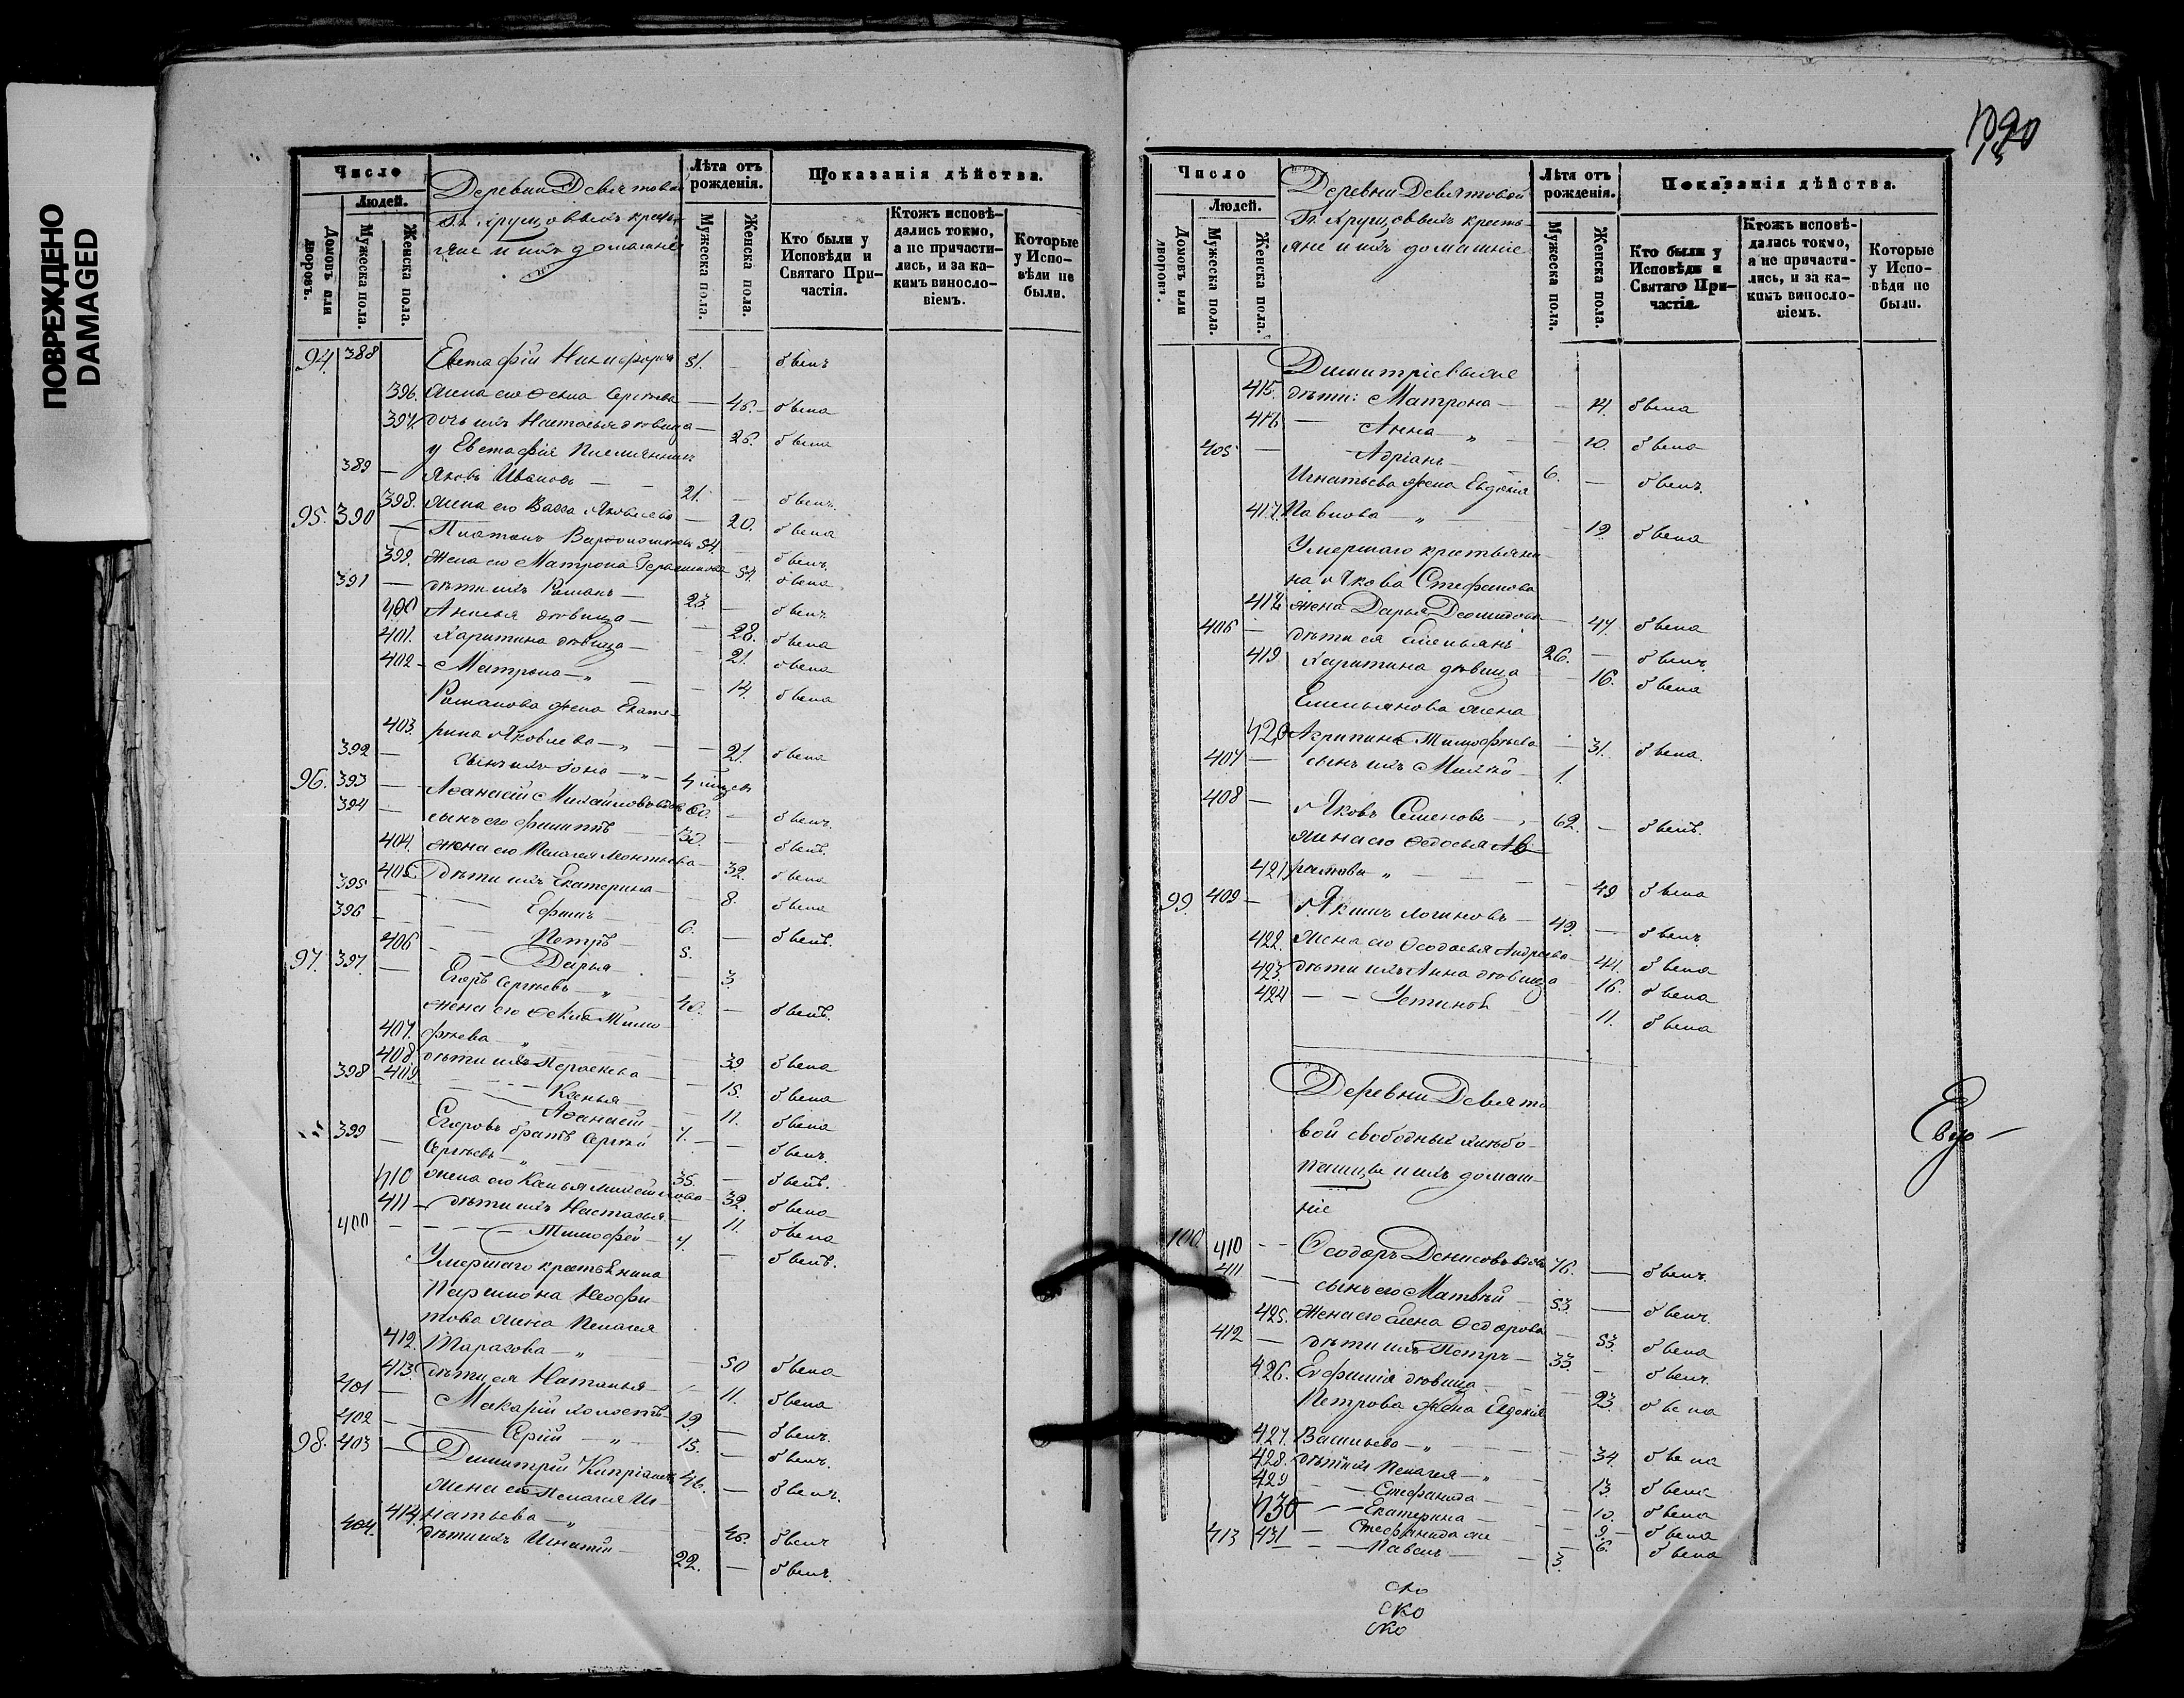 ПОВРЕЖДЕНО
DAMAGED
Число
Людей.
Домовъ или дворовъ.
Мужеска пола.
Женска пола.
Деревни Девятовой
Гг. Хрущовыхъ кресть-
яне и ихъ домашніе
Лѣта отъ рожденія.
Мужеска пола.
Женска пола.
Показанія дѣйства.
Кто были у Исповѣди и Святаго Причастія.
Ктожъ исповѣ-
дались токмо,
а не причасти-
лись, и за ка-
кимъ винosло-
віемъ.
Которые
у Испо-
вѣди не
были.
94. 388 Евстафій Никифоровъ 51. — бвенъ
396. жена его Ѳекла Сергѣева — 48. бвена
397. дочь ихъ Настасья дѣвица — 26. бвена
у Евстафія Племянникъ
389 — Яковъ Ивановъ — 21. — бвенъ
398. жена его Васса Яковлева — 20. бвена
95. 390 — Платонъ Варѳоломѣевъ 54. бвенъ
399. жена его Матрона Герасимова 54. бвена
391 — дѣти ихъ Романъ — 23. — бвенъ
400 Анисья дѣвица — 28. бвена
401. Харитина дѣвица — 21. бвена
402 — Матрона — „ — 14. бвена
Романова жена Екате-
403. рина Яковлева — „ — 21. бвена
392 — сынъ ихъ Іона — „ — 4 мѣсяц
96. 393 — Аѳанасій Михайловъ вдовъ 60. — бвенъ
394 — сынъ его Филиппъ — 30. — бвенъ.
404. жена его Пелагея Леонтьева — 32. бвена
405. Дѣти ихъ Екатерина — 8. бвена
395 — Ефимъ — 6. — бвенъ.
396 — Петръ — 5.
406 — Дарья — 3.
97. 397. — Егоръ Сергѣевъ — „ 40. — бвенъ.
жена его Ѳекла Тимо
407. фѣева „ — 39 бвена
408. дѣти ихъ Парасковья — 15. бвена
409 — Ксенья — 11. бвена
398 — Аѳанасій — 7. — бвенъ.
Егоровъ братъ Сергѣй
399 — Сергѣевъ — „ 35. — бвенъ.
410 жена его Ксенья Михайлова — 32. бвена
411 — дѣти ихъ Настасья — 11. бвена
400 — Тимофѣй — 7. — бвенъ.
Умершаго крестьянина
Парамона Неофи-
това жена Пелагея
412. Тарасова — „ 50 бвена
413. дѣти ея Наталья — 11. бвена
401 — Макарій холостъ — 19. — бвенъ.
402 — Сергій — „ 15. — бвенъ.
98. 403 — Димитрій Кипріановъ 46. — бвенъ.
жена его Пелагея Иг-
414. натьева — „ 46. бвена
404. дѣти ихъ Игнатій — 22. — бвенъ.
Число
Людей.
Домовъ или дворовъ.
Мужеска пола.
Женска пола.
Деревни Девятовой
Гг. Хрущовыхъ кресть-
яне и ихъ домашніе
Лѣта отъ рожденія.
Мужеска пола.
Женска пола.
Показанія дѣйства.
Кто были у Исповѣди и Святаго Причастія.
Ктожъ исповѣ-
дались токмо,
а не причасти-
лись, и за ка-
кимъ винosло-
віемъ.
Которые
у Испо-
вѣди не
были.
Димитріевы же
415. дѣти: Матрона — 14. бвена
416 — Анна — „ — 10. бвена
405 — Адріанъ — 6. — бвенъ.
Игнатьева жена Евдокія
417. Павлова — „ — 19. бвена
Умершаго крестьяни-
на Якова Стефанова
418 жена Дарья Деомидова — 47. бвена
406 — дѣти ея Емельянъ 26. — бвенъ.
419 Харитина дѣвица — 16. бвена
Емельянова жена
420 Акрипина Тимофѣева — 31. бвена.
407 — сынъ ихъ Михей — 1.
408 — Яковъ Семеновъ — 62. — бвенъ.
жена его Ѳедосья Ав
421 рамова „ — 49 бвена
99. 409 — Якимъ Логиновъ — 49. — бвенъ
422. жена его Ѳеодосья Андреева — 44. бвена
423. дѣти ихъ Анна дѣвица 16. бвена
424 — Устинья — 11. бвена
Деревни Девято
вой свободные хлѣбо-
пашцы и ихъ домаш-
ніе
100. 410 — Ѳеодоръ Денисовъ вдовъ 76. — бвенъ.
411 — сынъ его Матвѣй — 53. — бвенъ.
425. Жена его Елена Ѳедорова — 53. бвена
412 — дѣти ихъ Петръ — 33. — бвенъ.
426. Евфимія дѣвица — 23. бвена
Петрова жена Евдокія
427. Васильева — „ — 34 бвена
428. дѣти ихъ Пелагея — „ 13 бвена
429 — Стефанида — 10. бвена
430 — Екатерина — 9. — бвена
431 — Стефанида же — 6. бвена
413 — Павелъ — 3.